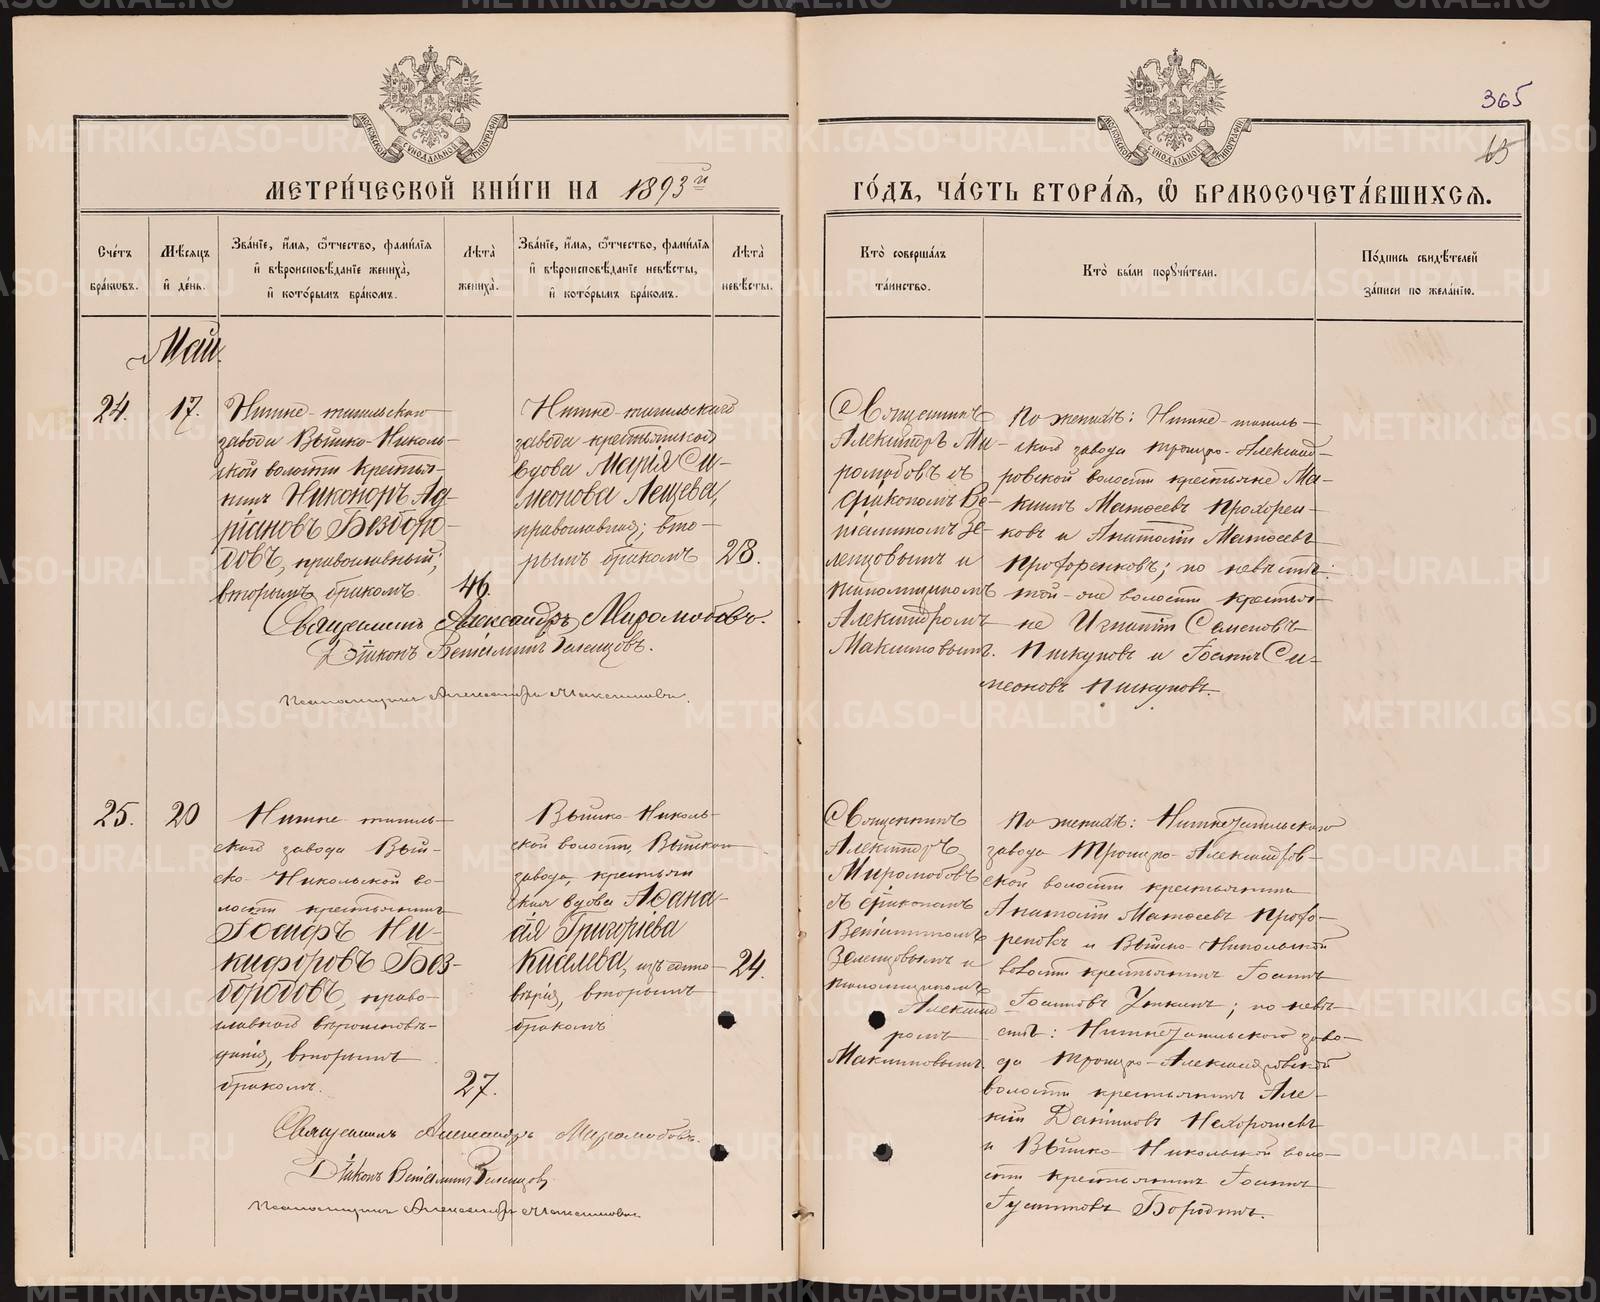 365
65
МЕТРИ́ЧЕСКОЙ КНИ́ГИ НА 1893й
ГО́ДЪ, ЧА́СТЬ ВТОРА́Я, Ѽ БРАКОСОЧЕТА́ВШИХСЯ.
Сче́тъ бра́кωвъ.
Мѣ́сяцъ и҆ де́нь.
Зва́нїе, и҆́мя, ѻ҆́тчество, фами́лїя
и҆ вѣроисповѣ́данїе жениха̀,
и҆ кото́рымъ бра́комъ.
Лѣта̀ жениха̀.
Зва́нїе, и҆́мя, ѻ҆́тчество, фами́лїя
и҆ вѣроисповѣ́данїе невѣ́сты,
и҆ кото́рымъ бра́комъ.
Лѣта̀ невѣ́сты.
Кто̀ соверша́лъ
та́инство.
Кто̀ бы́ли порꙋчи́тели.
По́дпись свидѣ́телей
за́писи по жела́нїю.
Май.
24.
17.
Нижне-тагильскаго
завода Выйско-Николь-
ской волости крестья-
нинъ Никоноръ Ад-
ріановъ Безборо-
довъ, православный;
вторымъ бракомъ
46.
Нижне-тагильскаго
завода крестьянская
вдова Марія Си-
меонова Лещева,
православная; вто-
рымъ бракомъ
28.
Священникъ
Александръ Ми-
ролюбовъ съ
діакономъ Ве-
ніаминомъ Зе-
ленцовымъ и
псаломщикомъ
Александромъ
Максимовымъ.
По женихѣ: Нижне-тагиль-
скаго завода Троицко-Александ-
ровской волости крестьяне Ма-
кимъ Матѳеевъ Прохорен-
ковъ и Анатолій Матѳеевъ
Профоренковъ; по невѣстѣ:
той-же волости крестья-
не Игнатій Семеновъ
Пискуновъ и Іоаннъ Си-
меоновъ Пискуновъ.
Священникъ Александръ Миролюбовъ.
Діаконъ Веніаминъ Зеленцовъ.
Псаломщикъ Александръ Максимовъ.
25.
20
Нижне-тагиль-
скаго завода Вый-
ско-Никольской во-
лости крестьянинъ
Ѳеодоръ Ни-
кифоровъ Без-
бородовъ, право-
славнаго вѣроисповѣ-
данія, вторымъ
бракомъ.
27.
Выйско-Николь-
ской волости, Выйскаго
завода, крестьян
ская вдова Аѳана-
сія Григоріева
Киселева, изъ едино-
вѣрія, вторымъ
бракомъ
24.
Священникъ
Александръ
Миролюбовъ
съ діакономъ
Веніаминомъ
Зеленцовымъ и
псаломщикомъ
Александ-
ромъ
Максимовымъ.
По женихѣ: Нижнетагильскаго
завода Троицко-Александров-
ской волости крестьянинъ
Анатолій Матѳеевъ Профо-
ренковъ и Выйско-Никольской
волости крестьянинъ Іоаннъ
Іоанновъ Уткинъ; по невѣ-
стѣ: Нижнетагильскаго заво-
да Троицко-Александровской
волости крестьянинъ Але-
ксій Даниловъ Нехорошевъ
и Выйско-Никольской воло-
сти крестьянинъ Іоаннъ
Іустиновъ Бородинъ.
Священникъ Александръ Миролюбовъ.
Діаконъ Веніаминъ Зеленцовъ
Псаломщикъ Александръ Максимовъ.
METRIKI.GASO-URAL.RU